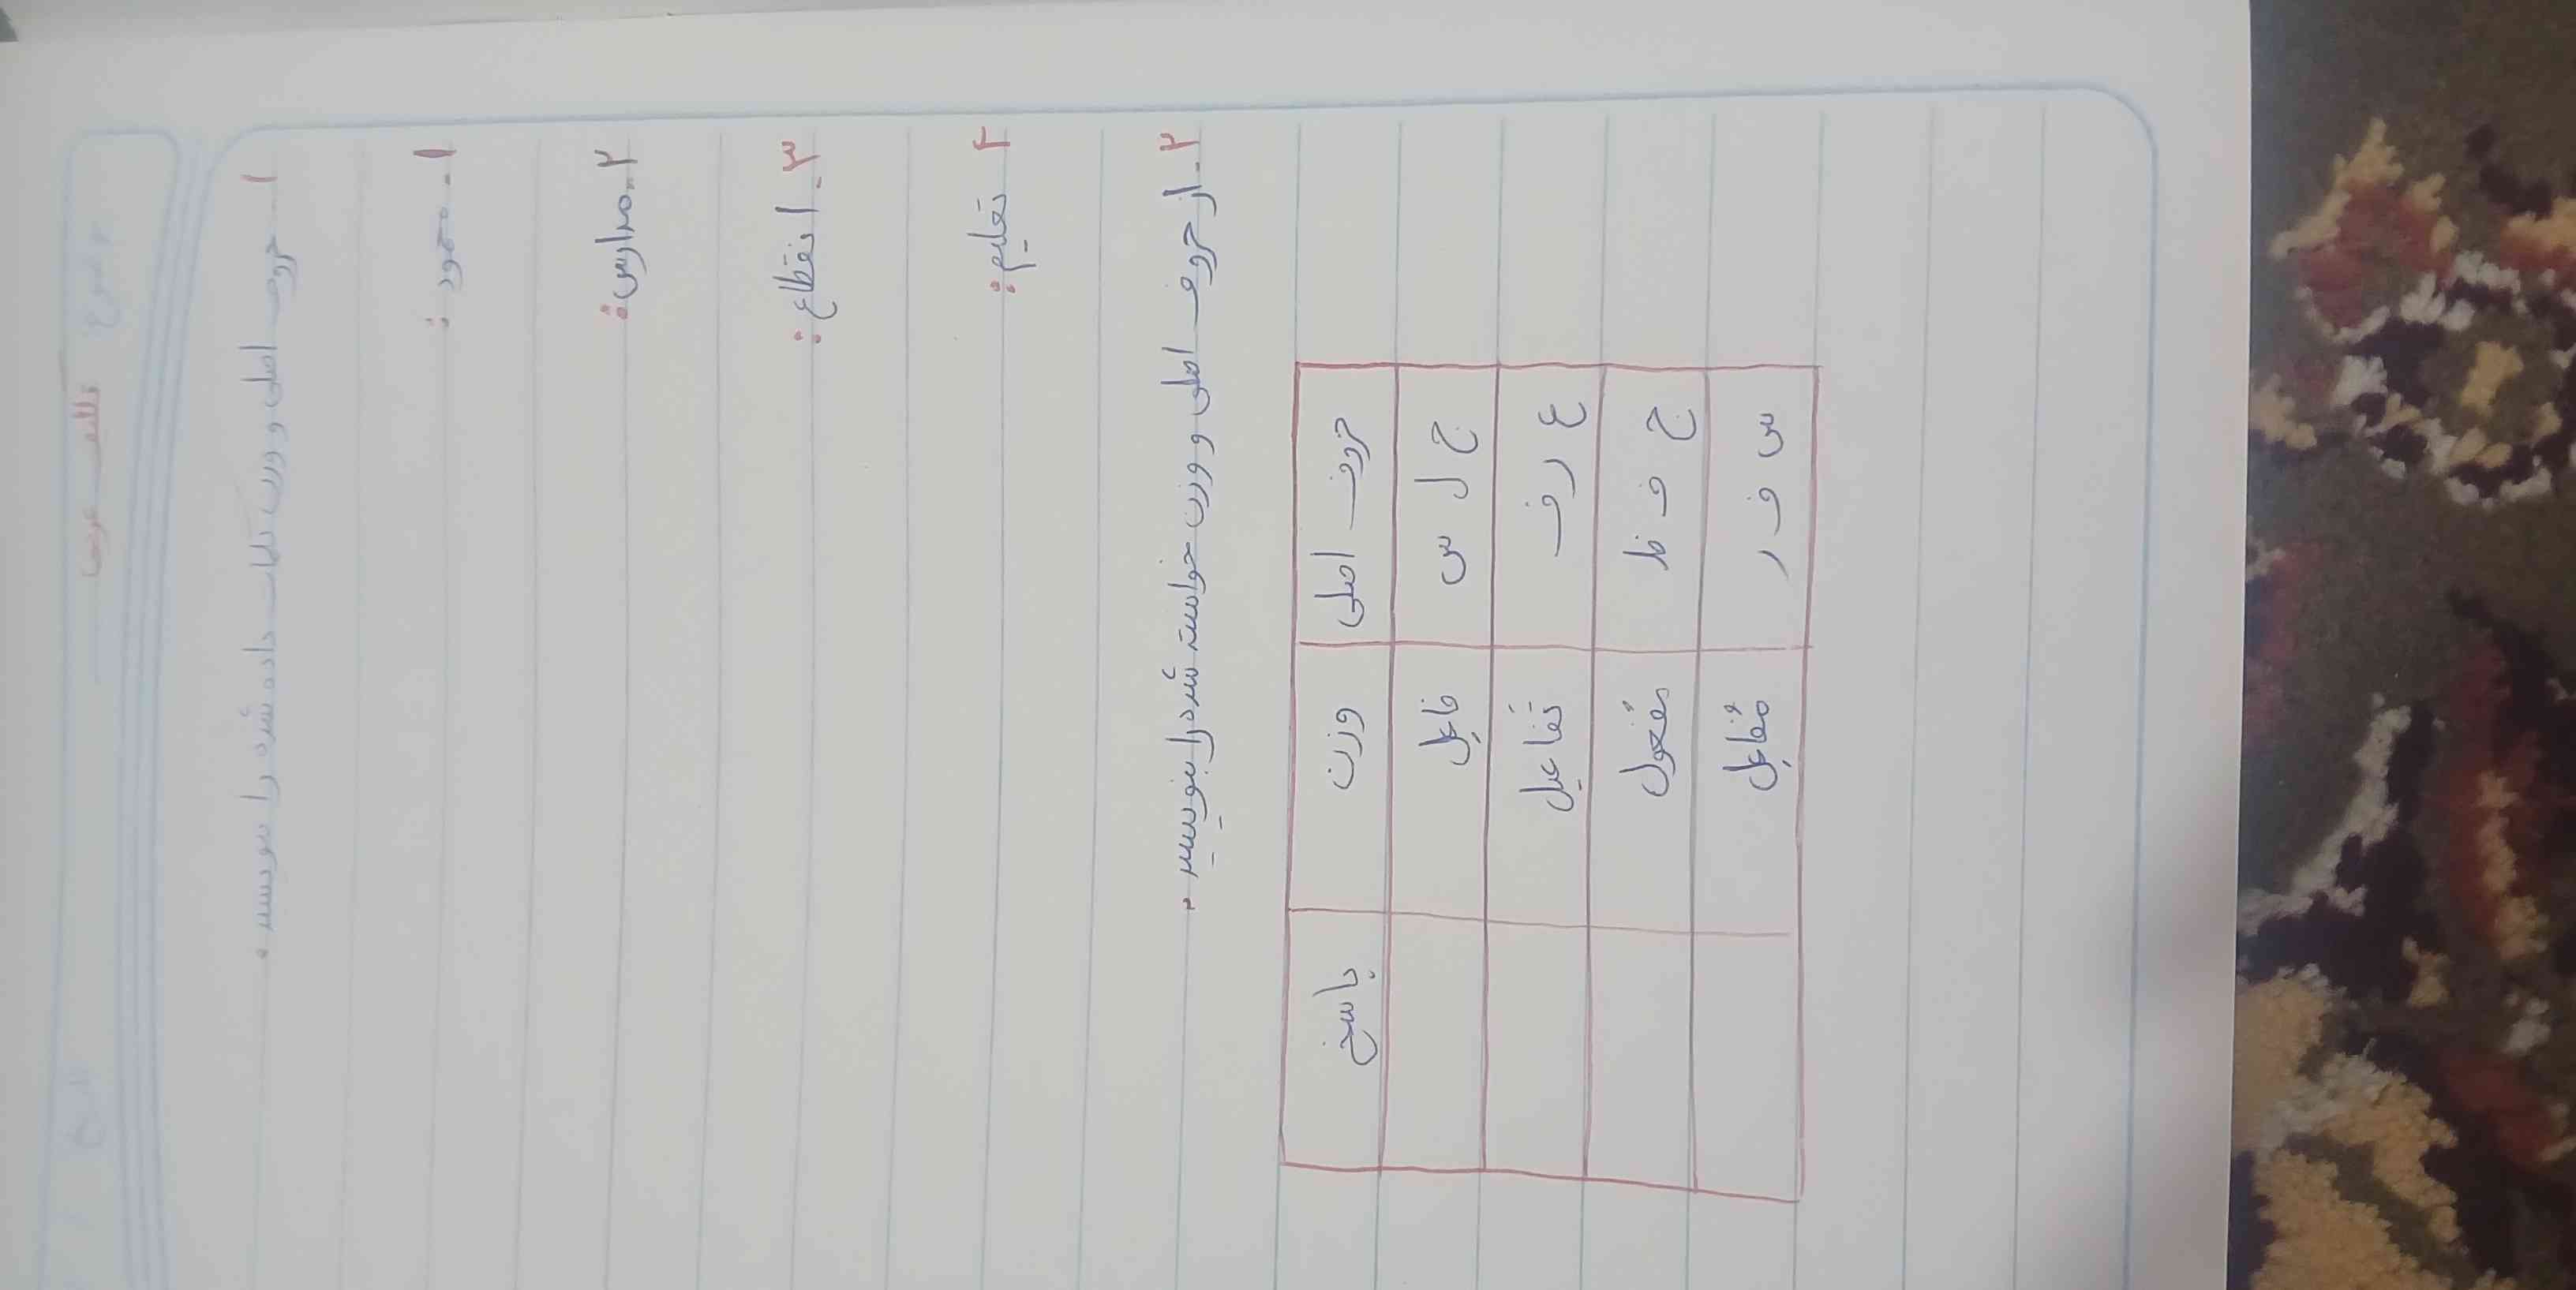 موضوع تکلیف عربی
تاریخ
۱- حروف اصلی و وزن کلمات داده شده را بنویسید.
۱- محمود :
۲- مدارس :
۳- انقطاع :
۴ تعلیم :
۲- از حروف اصلی و وزن خواسته شده را بنویسید.
حروف اصلی وزن پاسخ
ج ل س فاعِل
ع ر ف تَفاعیل
ح ف ظ مَفعول
س ف ر مُفاعِل